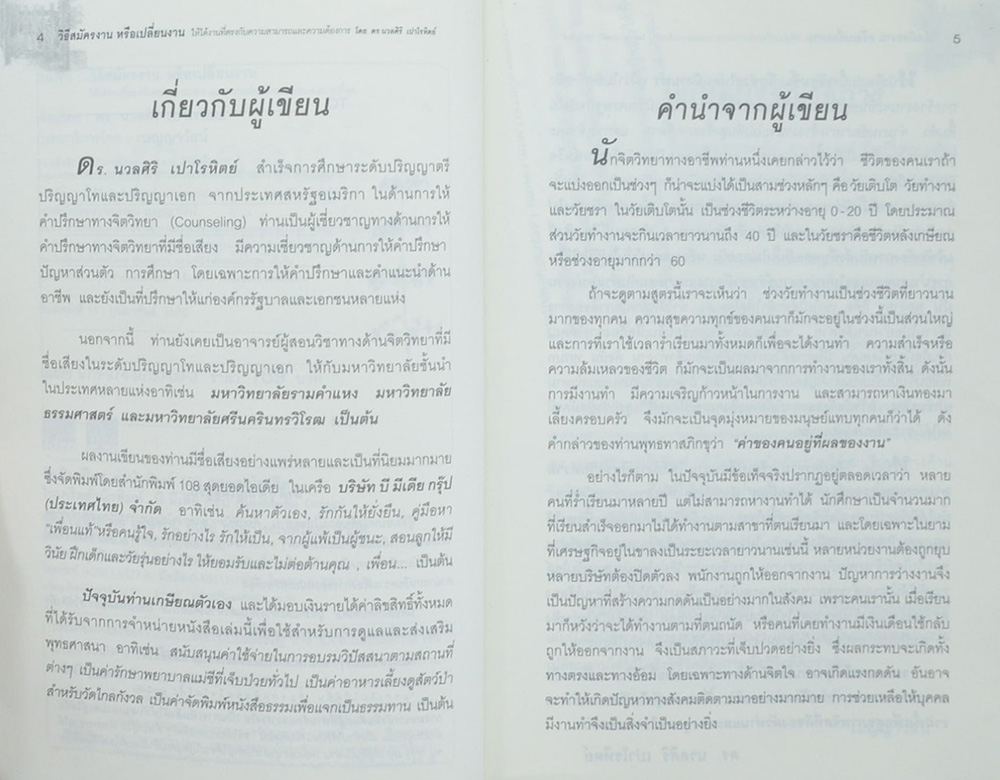 4 วิธีสมัครงาน หรือเปลี่ยนงาน ให้ได้งานที่ตรงกับความสามารถและความต้องการ โดย ดร.นวลศิริ เปาโรหิตย์
เกี่ยวกับผู้เขียน
ดร. นวลศิริ เปาโรหิตย์ สำเร็จการศึกษาระดับปริญญาตรี
ปริญญาโทและปริญญาเอก จากประเทศสหรัฐอเมริกา ในด้านการให้
คำปรึกษาทางจิตวิทยา (Counseling) ท่านเป็นผู้เชี่ยวชาญทางด้านการให้
คำปรึกษาทางจิตวิทยาที่มีชื่อเสียง มีความเชี่ยวชาญด้านการให้คำปรึกษา
ปัญหาส่วนตัว การศึกษา โดยเฉพาะการให้คำปรึกษาและคำแนะนำด้าน
อาชีพ และยังเป็นที่ปรึกษาให้แก่องค์กรรัฐบาลและเอกชนหลายแห่ง
นอกจากนี้ ท่านยังเคยเป็นอาจารย์ผู้สอนวิชาทางด้านจิตวิทยาที่มี
ชื่อเสียงในระดับปริญญาโทและปริญญาเอก ให้กับมหาวิทยาลัยชั้นนำ
ในประเทศหลายแห่งอาทิเช่น มหาวิทยาลัยรามคำแหง มหาวิทยาลัย
ธรรมศาสตร์ และมหาวิทยาลัยศรีนครินทรวิโรฒ เป็นต้น
ผลงานเขียนของท่านมีชื่อเสียงอย่างแพร่หลายและเป็นที่นิยมมากมาย
ซึ่งจัดพิมพ์โดยสำนักพิมพ์ 108 สุดยอดไอเดีย ในเครือ บริษัท บี มีเดีย กรุ๊ป
(ประเทศไทย) จำกัด อาทิเช่น ค้นหาตัวเอง, รักกันให้ยั่งยืน, คู่มือหา
"เพื่อนแท้"หรือคนรู้ใจ, รักอย่างไร รักให้เป็น, จากผู้แพ้เป็นผู้ชนะ, สอนลูกให้มี
วินัย ฝึกเด็กและวัยรุ่นอย่างไร ให้ยอมรับและไม่ต่อต้านคุณ , เพื่อน... เป็นต้น
ปัจจุบันท่านเกษียณตัวเอง และได้มอบเงินรายได้ค่าลิขสิทธิ์ทั้งหมด
ที่ได้รับจากการจำหน่ายหนังสือเล่มนี้เพื่อใช้สำหรับการดูแลและส่งเสริม
พุทธศาสนา อาทิเช่น สนับสนุนค่าใช้จ่ายในการอบรมวิปัสสนาตามสถานที่
ต่างๆ เป็นค่ารักษาพยาบาลแม่ชีที่เจ็บป่วยทั่วไป เป็นค่าอาหารเลี้ยงดูสัตว์ป่า
สำหรับวัดไกลกังวล เป็นค่าจัดพิมพ์หนังสือธรรมเพื่อแจกเป็นธรรมทาน เป็นต้น
5
คำนำจากผู้เขียน
นักจิตวิทยาทางอาชีพท่านหนึ่งเคยกล่าวไว้ว่า ชีวิตของคนเราถ้า
จะแบ่งออกเป็นช่วงๆ ก็น่าจะแบ่งได้เป็นสามช่วงหลักๆ คือ วัยเติบโต วัยทำงาน
และวัยชรา ในวัยเติบโตนั้น เป็นช่วงชีวิตระหว่างอายุ 0-20 ปี โดยประมาณ
ส่วนวัยทำงานจะกินเวลายาวนานถึง 40 ปี และในวัยชราคือชีวิตหลังเกษียณ
หรือช่วงอายุมากกว่า 60
ถ้าจะดูตามสูตรนี้เราจะเห็นว่า ช่วงวัยทำงานเป็นช่วงชีวิตที่ยาวนาน
มากของทุกคน ความสุขความทุกข์ของคนเราก็มักจะอยู่ในช่วงนี้เป็นส่วนใหญ่
และการที่เราใช้เวลาร่ำเรียนมาทั้งหมดก็เพื่อจะได้งานทำ ความสำเร็จหรือ
ความล้มเหลวของชีวิต ก็มักจะเป็นผลมาจากการทำงานของเราทั้งสิ้น ดังนั้น
การมีงานทำ มีความเจริญก้าวหน้าในการงาน และสามารถหาเงินทองมา
เลี้ยงครอบครัว จึงมักจะเป็นจุดมุ่งหมายของมนุษย์แทบทุกคนก็ว่าได้ ดัง
คำกล่าวของท่านพุทธทาสภิกขุว่า "ค่าของคนอยู่ที่ผลของงาน"
อย่างไรก็ตาม ในปัจจุบันมีข้อเท็จจริงปรากฏอยู่ตลอดเวลาว่า หลาย
คนที่ร่ำเรียนมาหลายปี แต่ไม่สามารถหางานทำได้ นักศึกษาเป็นจำนวนมาก
ที่เรียนสำเร็จออกมาไม่ได้ทำงานตามสาขาที่ตนเรียนมา และโดยเฉพาะในยาม
ที่เศรษฐกิจอยู่ในขาลงเป็นระยะเวลายาวนานเช่นนี้ หลายหน่วยงานต้องถูกยุบ
หลายบริษัทต้องปิดตัวลง พนักงานถูกให้ออกจากงาน ปัญหาการว่างงานจึง
เป็นปัญหาที่สร้างความกดดันเป็นอย่างมากในสังคม เพราะคนเรานั้น เมื่อเรียน
มาก็หวังว่าจะได้ทำงานตามที่ตนถนัด หรือคนที่เคยทำงานมีเงินเดือนใช้กลับ
ถูกให้ออกจากงาน จึงเป็นสภาวะที่เจ็บปวดอย่างยิ่ง ซึ่งผลกระทบจะเกิดทั้ง
ทางตรงและทางอ้อม โดยเฉพาะทางด้านจิตใจ อาจเกิดแรงกดดัน อันอาจ
จะทำให้เกิดปัญหาทางสังคมติดตามมาอย่างมากมาย การช่วยเหลือให้บุคคล
มีงานทำจึงเป็นสิ่งจำเป็นอย่างยิ่ง